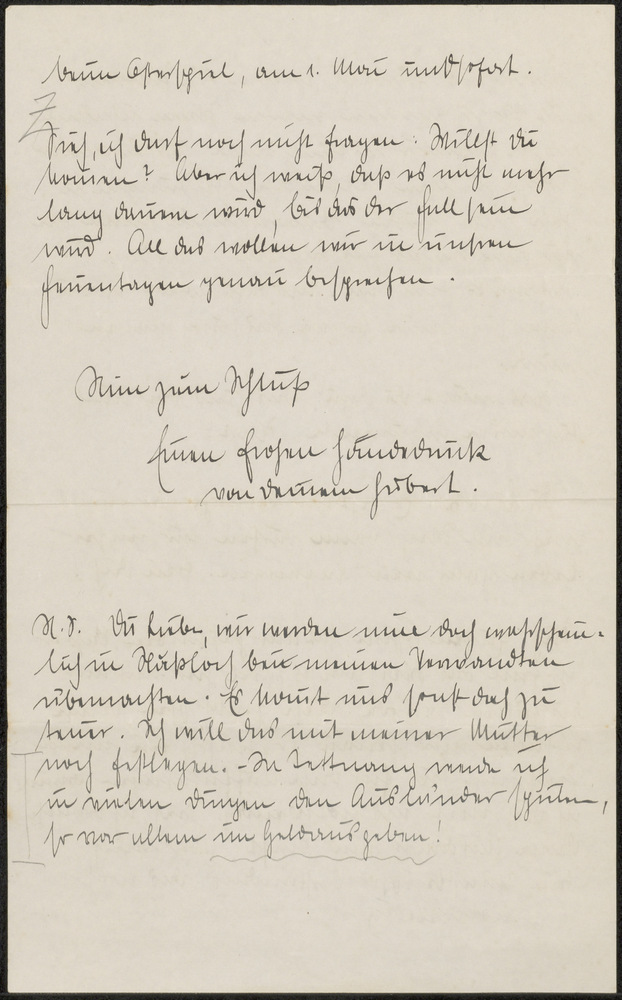 beim Osterspiel, am 1. Mai und sofort.
Sieh, ich darf noch nicht fragen: Willst Du
kommen? Aber ich weiß, daß es nicht mehr
lang dauern wird, bis das der Fall sein
wird. All das wollen wir in unsren
Ferientagen genau besprechen.
Nun zum Schluß
Einen frohen Händedruck
von deinem Hubert.
N.S. Du Liebe, wir werden nun doch wahrschein-
lich in Haßloch bei meinen Verwandten
übernachten. Es kommt uns sonst doch zu
teuer. Ich will das mit meiner Mutter
noch festlegen. - In Tettnang werde ich
in vielen Dingen den Ausländer spielen,
so vor allem im Geldausgeben!